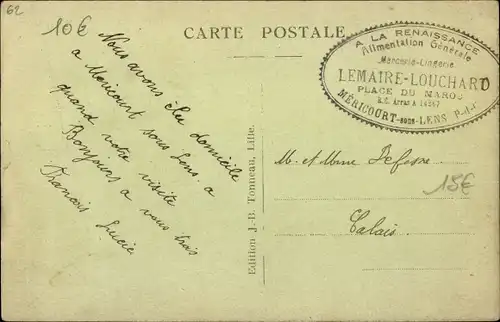 62
10€
CARTE POSTALE
A LA RENAISSANCE
Alimentation Générale
Mercerie-Lingerie
LEMAIRE-LOUCHARD
PLACE DU MAROC
R.C. Arras A 14367
MÉRICOURT-sous-LENS P-d-C
Nous avons élu domicile
a Mericourt sous Lens. a
quand votre visite
Bonjours a vous trois
Francois Lucie
Edition J.-B. Tonneau, Lille.
M. et Mme Defosse
15€
Calais